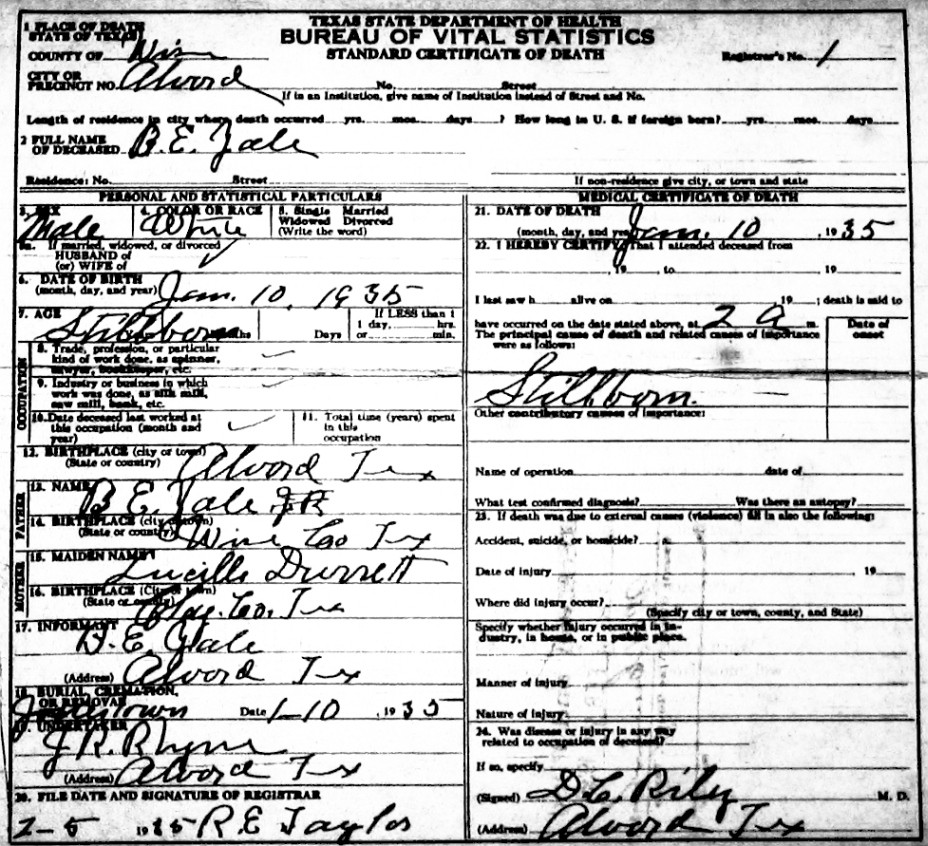 TEXAS STATE DEPARTMENT OF HEALTH
BUREAU OF VITAL STATISTICS
STANDARD CERTIFICATE OF DEATH
1 PLACE OF DEATH
STATE OF TEXAS
COUNTY OF Wise Registrar's No. 1
CITY OR
PRECINCT NO. Alvord No. Street
If in an Institution, give name of Institution instead of Street and No.
Length of residence in city where death occurred yrs. mos. days ? How long in U. S. if foreign born? yrs. mos. days
2 FULL NAME
OF DECEASED B.E. Yale
Residence: No. Street If non-residence give city, or town and state
PERSONAL AND STATISTICAL PARTICULARS
3. SEX Male 4. COLOR OR RACE White 5. Single Married
Widowed Divorced
(Write the word)
5a. If married, widowed, or divorced
HUSBAND of
(or) WIFE of ✓
6. DATE OF BIRTH
(month, day, and year) Jan. 10, 1935
7. AGE Stillborn Years Months Days If LESS than 1
1 day, hrs.
or min.
OCCUPATION
8. Trade, profession, or particular
kind of work done, as spinner,
sawyer, bookkeeper, etc. ✓
9. Industry or business in which
work was done, as silk mill,
saw mill, bank, etc. ✓
10. Date deceased last worked at
this occupation (month and
year) ✓
11. Total time (years) spent
in this
occupation
12. BIRTHPLACE (city or town)
(State or country) Alvord Tex
FATHER
13. NAME B E. Yale JR
14. BIRTHPLACE (city or town)
(State or country) Wise Co Tex
MOTHER
15. MAIDEN NAME Lucille Durrett
16. BIRTHPLACE (City or town)
(State or country) Co. Tex
17. INFORMANT B.E. Yale
(Address) Alvord Tex
18. BURIAL, CREMATION,
OR REMOVAL Date 1-10, 1935
19. UNDERTAKER J.R. Rhyne
(Address) Alvord Tex
20. FILE DATE AND SIGNATURE OF REGISTRAR
2-5 1935 R E Taylor
MEDICAL CERTIFICATE OF DEATH
21. DATE OF DEATH
(month, day, and year) Jan. 10, 1935
22. I HEREBY CERTIFY That I attended deceased from
, 19 , to 19
I last saw h alive on 19 ; death is said to
have occurred on the date stated above, at 2 a m.
The principal cause of death and related causes of importance
were as follows:
Date of
onset
Stillborn. —
Other contributory causes of importance:
Name of operation date of
What test confirmed diagnosis? Was there an autopsy?
23. If death was due to external causes (violence) fill in also the following:
Accident, suicide, or homicide?
Date of injury 19
Where did injury occur?
(Specify city or town, county, and State)
Specify whether injury occurred in in-
dustry, in house, or in public place.
Manner of injury
Nature of injury
24. Was disease or injury in any way
related to occupation of deceased?
If so, specify
(Signed) D.C. Riley M. D.
(Address) Alvord Tex